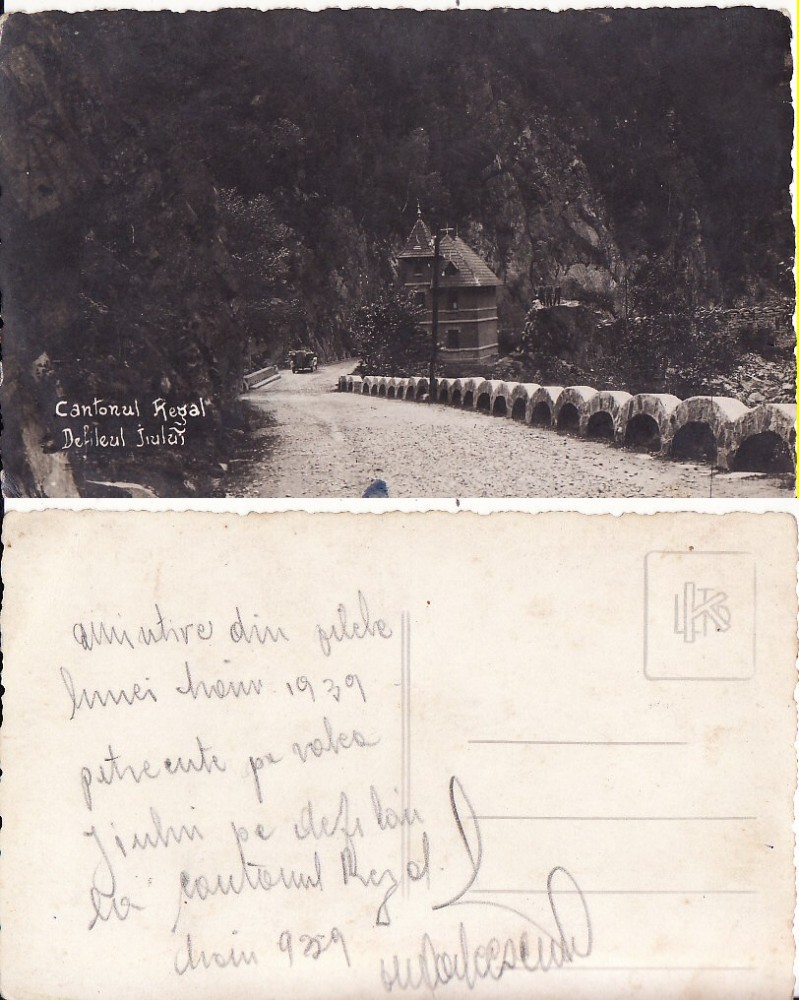 Cantonul Regal
Defileul Jiului
amintire din zilele
lunei Maiu 1939
petrecute pe valea
Jiului pe defilău
la cantonul Regal
Maiu 939